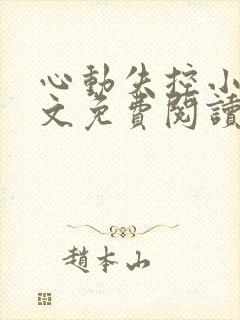 心動失控小
文免費閱讀
趙本山